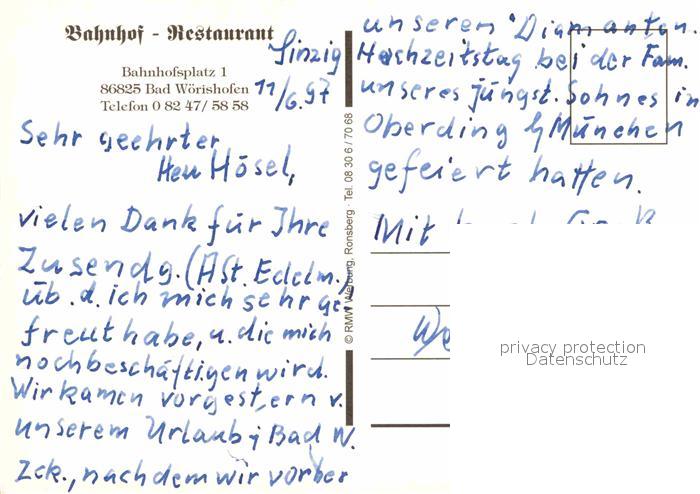 Bahnhof - Restaurant
Bahnhofsplatz 1
86825 Bad Wörishofen
Telefon 0 82 47/ 58 58
Sinzig
11/6.97
Sehr geehrter
Herr Hösel,
vielen Dank für Ihre
Zusendg. (ASt. Edelm.
üb. d. ich mich sehr ge
freut habe, u. die mich
noch beschäftigen wird.
Wir kamen vorgestern v.
unserem Urlaub i Bad W.
zck., nachdem wir vorher
© RMV Werbung, Ronsberg · Tel. 08 30 6 / 70 68
unseren Diamanten.
Hochzeitstag bei der Fam.
unseres jüngst. Sohnes in
Oberding b/ München
gefeiert hatten.
Mit
privacy protection
Datenschutz